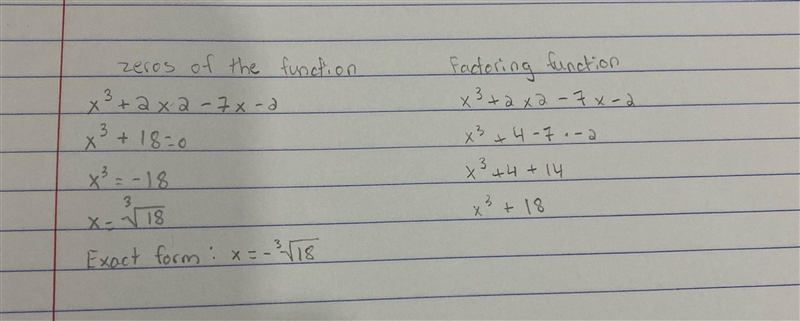 zeros of the function
x³ + 2 x 2 - 7x - 2
x³ + 18 = 0
x³ = -18
x = ³√18
Exact form: x = -³√18
Factoring function
x³ + 2 x 2 - 7 x - 2
x³ + 4 - 7 · - 2
x³ + 4 + 14
x³ + 18